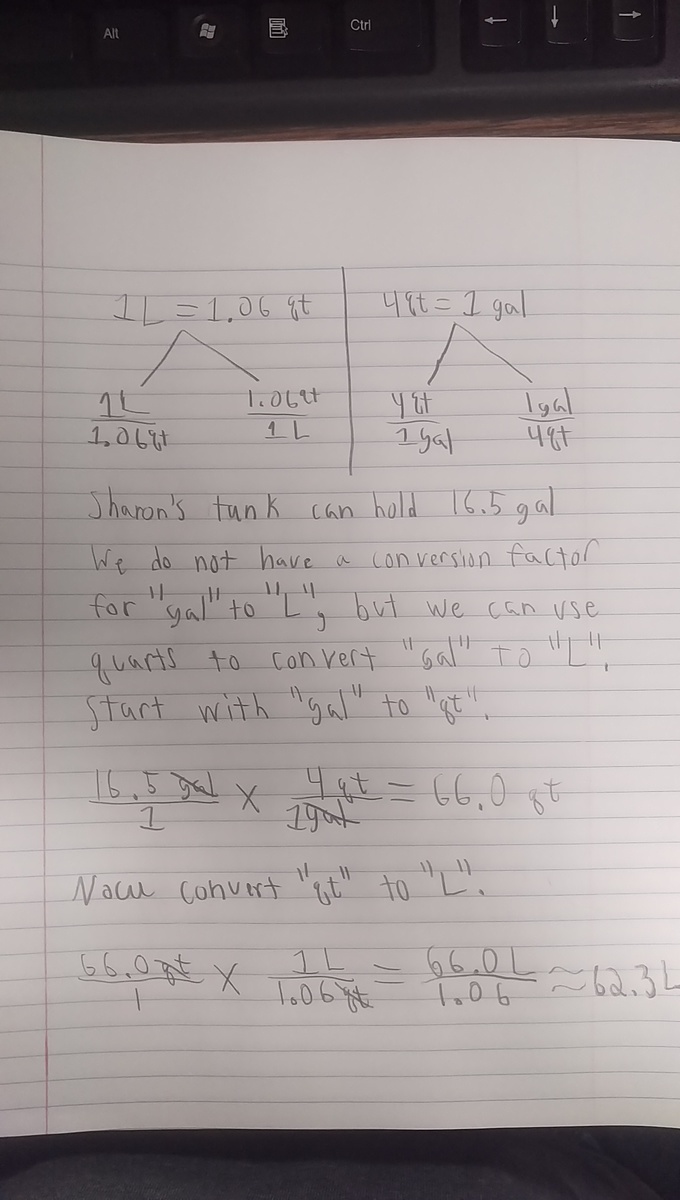 Alt Ctrl ← ↓ →
1L = 1.06 qt 4qt = 1 gal
1L/1.06qt 1.06qt/1L 4qt/1gal 1gal/4qt
Sharon's tank can hold 16.5 gal
We do not have a conversion factor
for "gal" to "L", but we can use
quarts to convert "gal" to "L".
Start with "gal" to "qt".
16.5 gal/1 × 4 qt/1gal = 66.0 qt
Now convert "qt" to "L".
66.0qt/1 × 1L/1.06qt = 66.0L/1.06 ≈ 62.3L